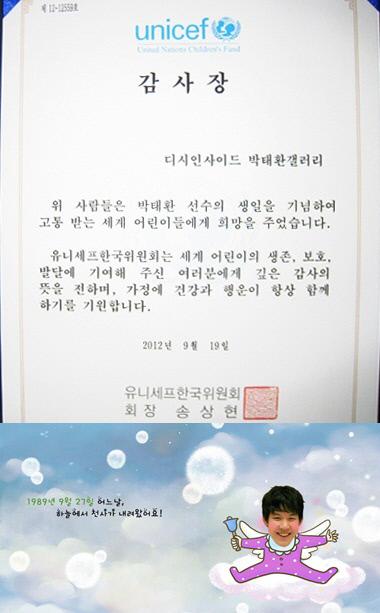 제 12-12559호
unicef
United Nations Children's Fund
감 사 장
디시인사이드 박태환갤러리
위 사람들은 박태환 선수의 생일을 기념하여
고통 받는 세계 어린이들에게 희망을 주었습니다.
유니세프한국위원회는 세계 어린이의 생존, 보호,
발달에 기여해 주신 여러분에게 깊은 감사의
뜻을 전하며, 가정에 건강과 행운이 항상 함께
하기를 기원합니다.
2012년 9월 19일
유니세프한국위원회
회 장 송 상 현
1989년 9월 27일 어느날,
하늘에서 천사가 내려왔어요!